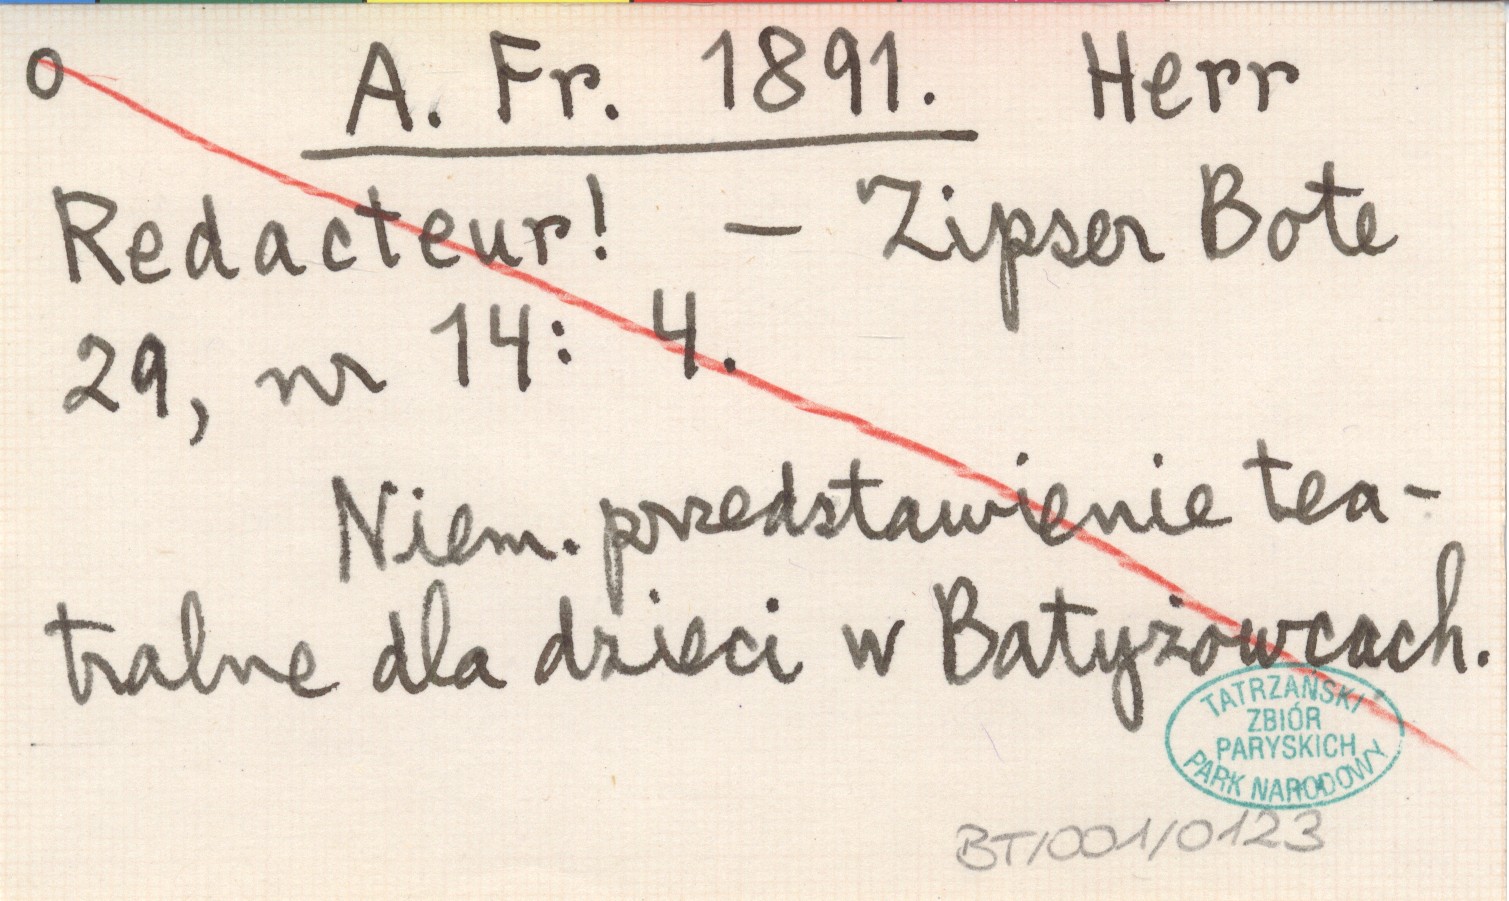 o A. Fr. 1891. Herr
Redacteur! — Zipser Bote
29, nr 14: 4.
Niem. przedstawienie tea-
tralne dla dzieci w Batyżowcach.
TATRZAŃSKI
ZBIÓR
PARYSKICH
PARK NARODOWY
BT/001/0123